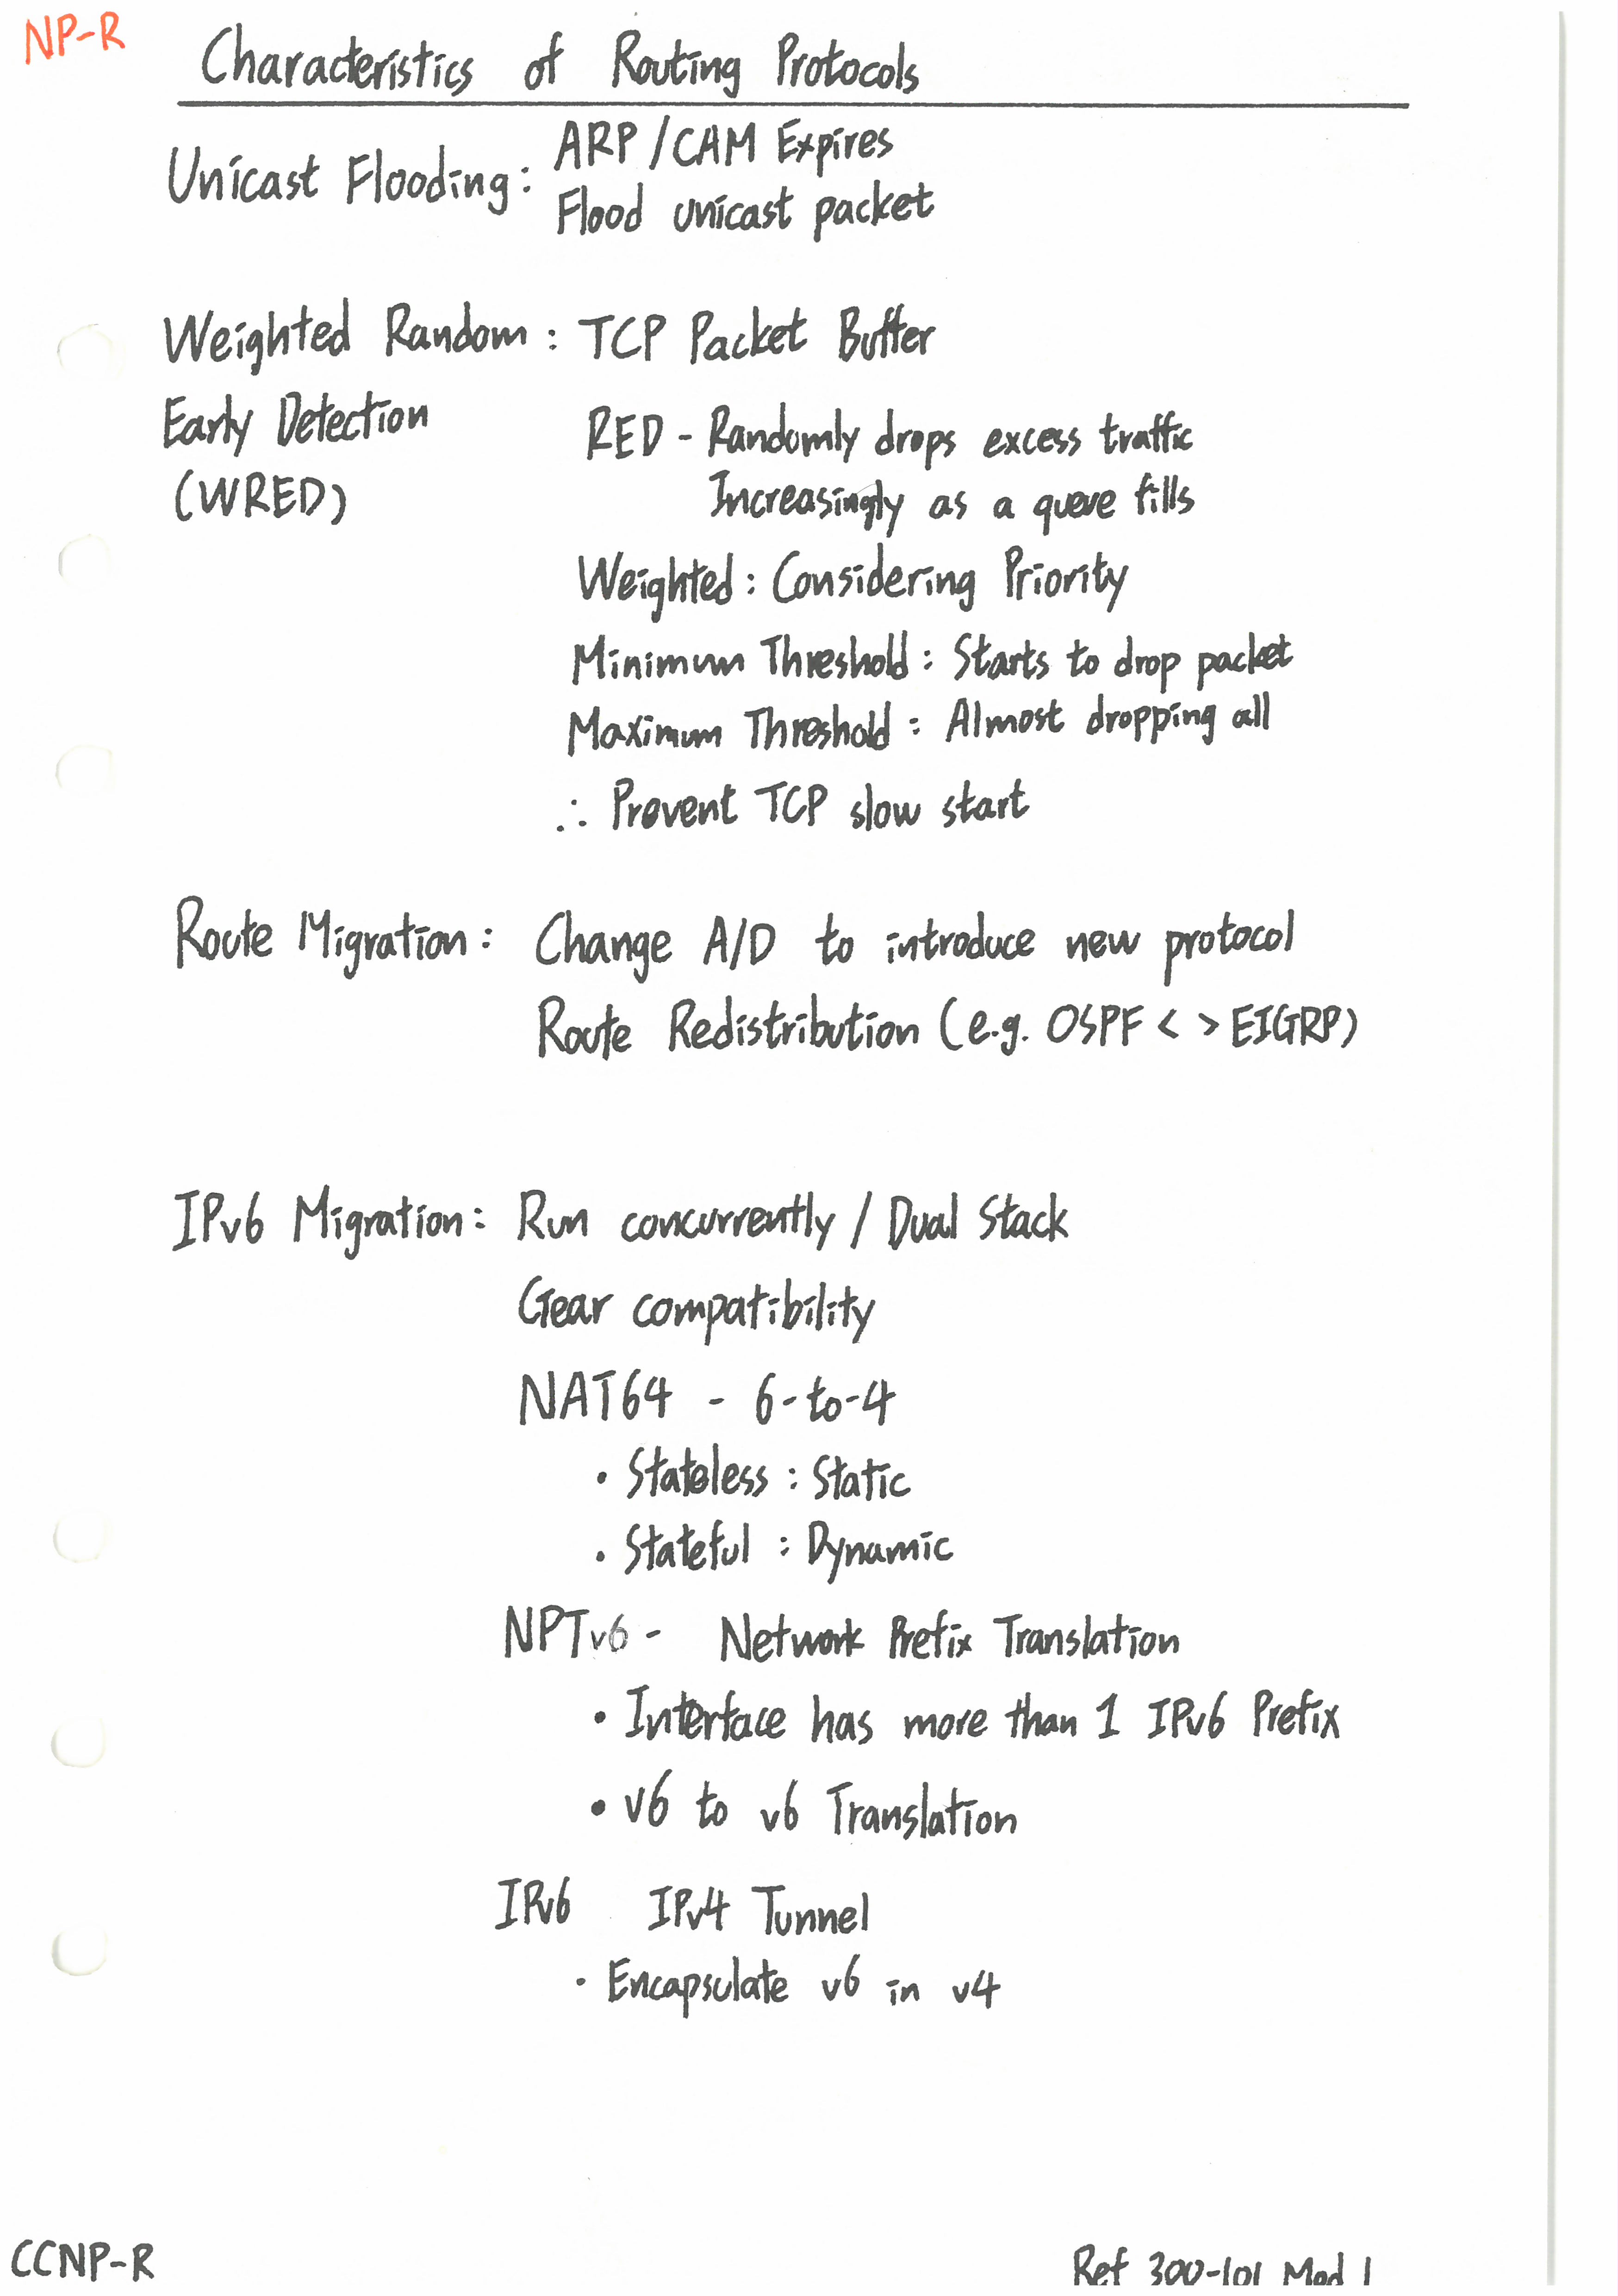 NP-R
Characteristics of Routing Protocols
Unicast Flooding: ARP/CAM Expires
Flood unicast packet
Weighted Random: TCP Packet Buffer
Early Detection
(WRED)
RED - Randomly drops excess traffic
Increasingly as a queue fills
Weighted: Considering Priority
Minimum Threshold: Starts to drop packet
Maximum Threshold: Almost dropping all
∴ Prevent TCP slow start
Route Migration: Change A/D to introduce new protocol
Route Redistribution (e.g. OSPF < > EIGRP)
IPv6 Migration: Run concurrently / Dual Stack
Gear compatibility
NAT64 - 6-to-4
• Stateless: Static
• Stateful: Dynamic
NPTv6 - Network Prefix Translation
• Interface has more than 1 IPv6 Prefix
• v6 to v6 Translation
IPv6 IPv4 Tunnel
• Encapsulate v6 in v4
CCNP-R
Ref 300-101 Mod 1